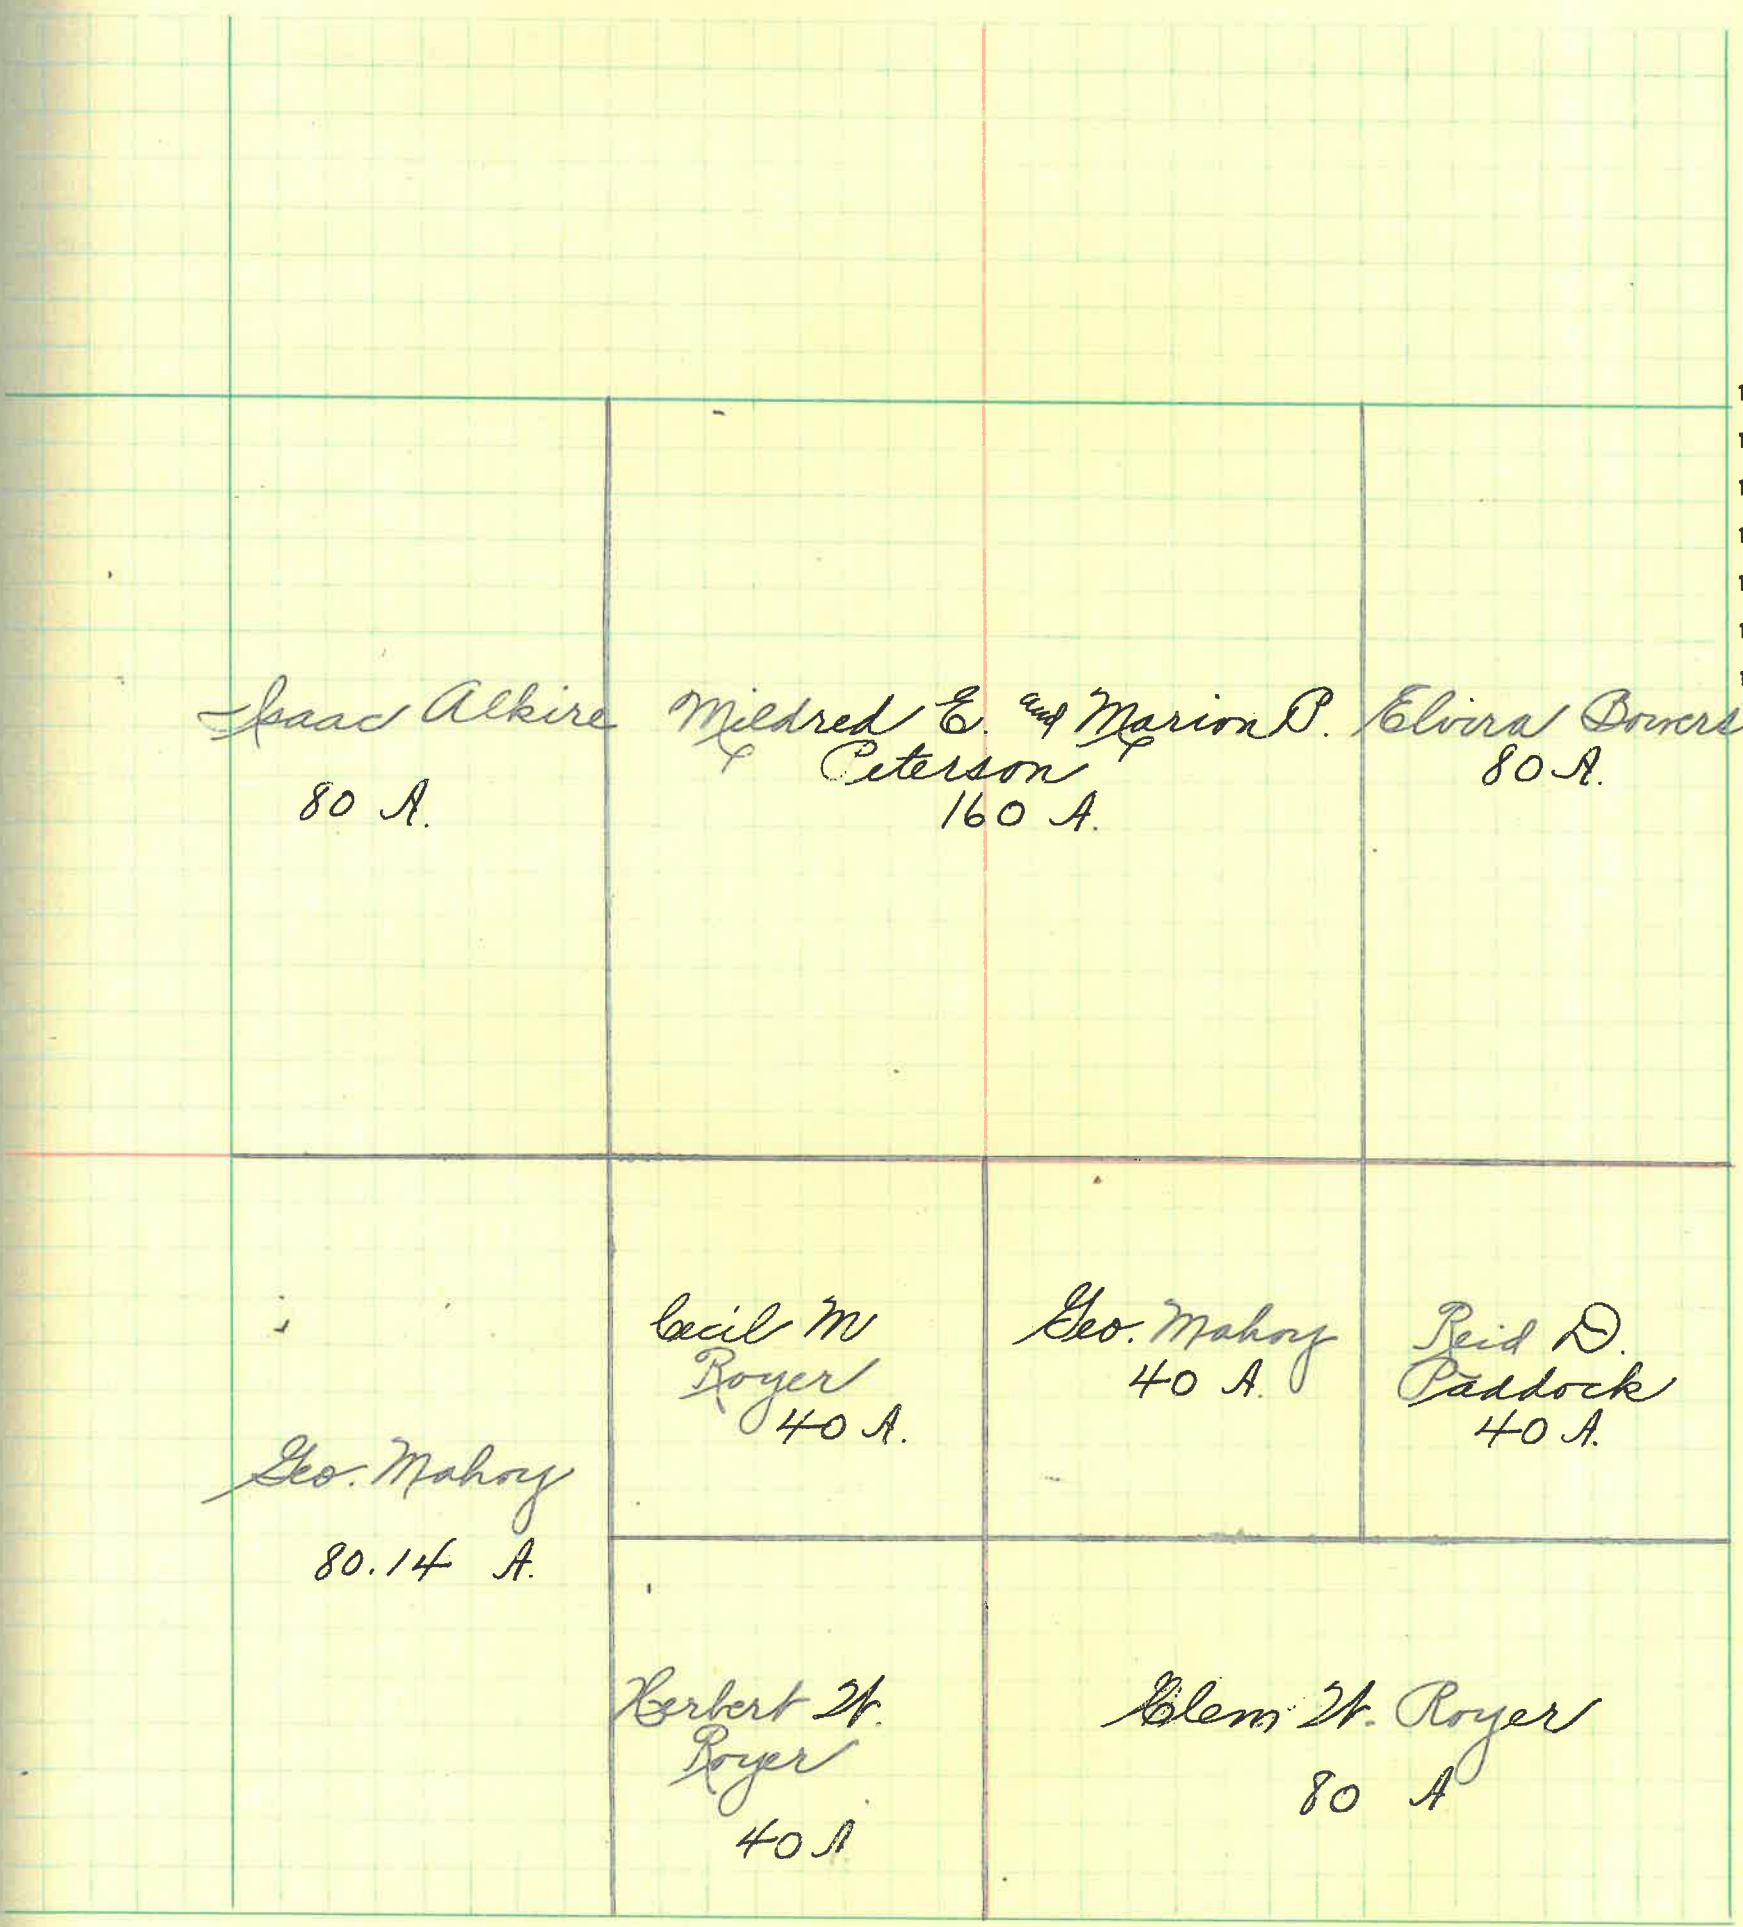 Isaac Alkire
80 A.
Mildred E. and Marion P.
Peterson
160 A.
Elvira Bowers
80 A.
Geo. Mahoy
80.14 A.
Cecil M
Royer
40 A.
Geo. Mahoy
40 A.
Reid D.
Paddock
40 A.
Herbert W.
Royer
40 A
Clem W. Royer
80 A